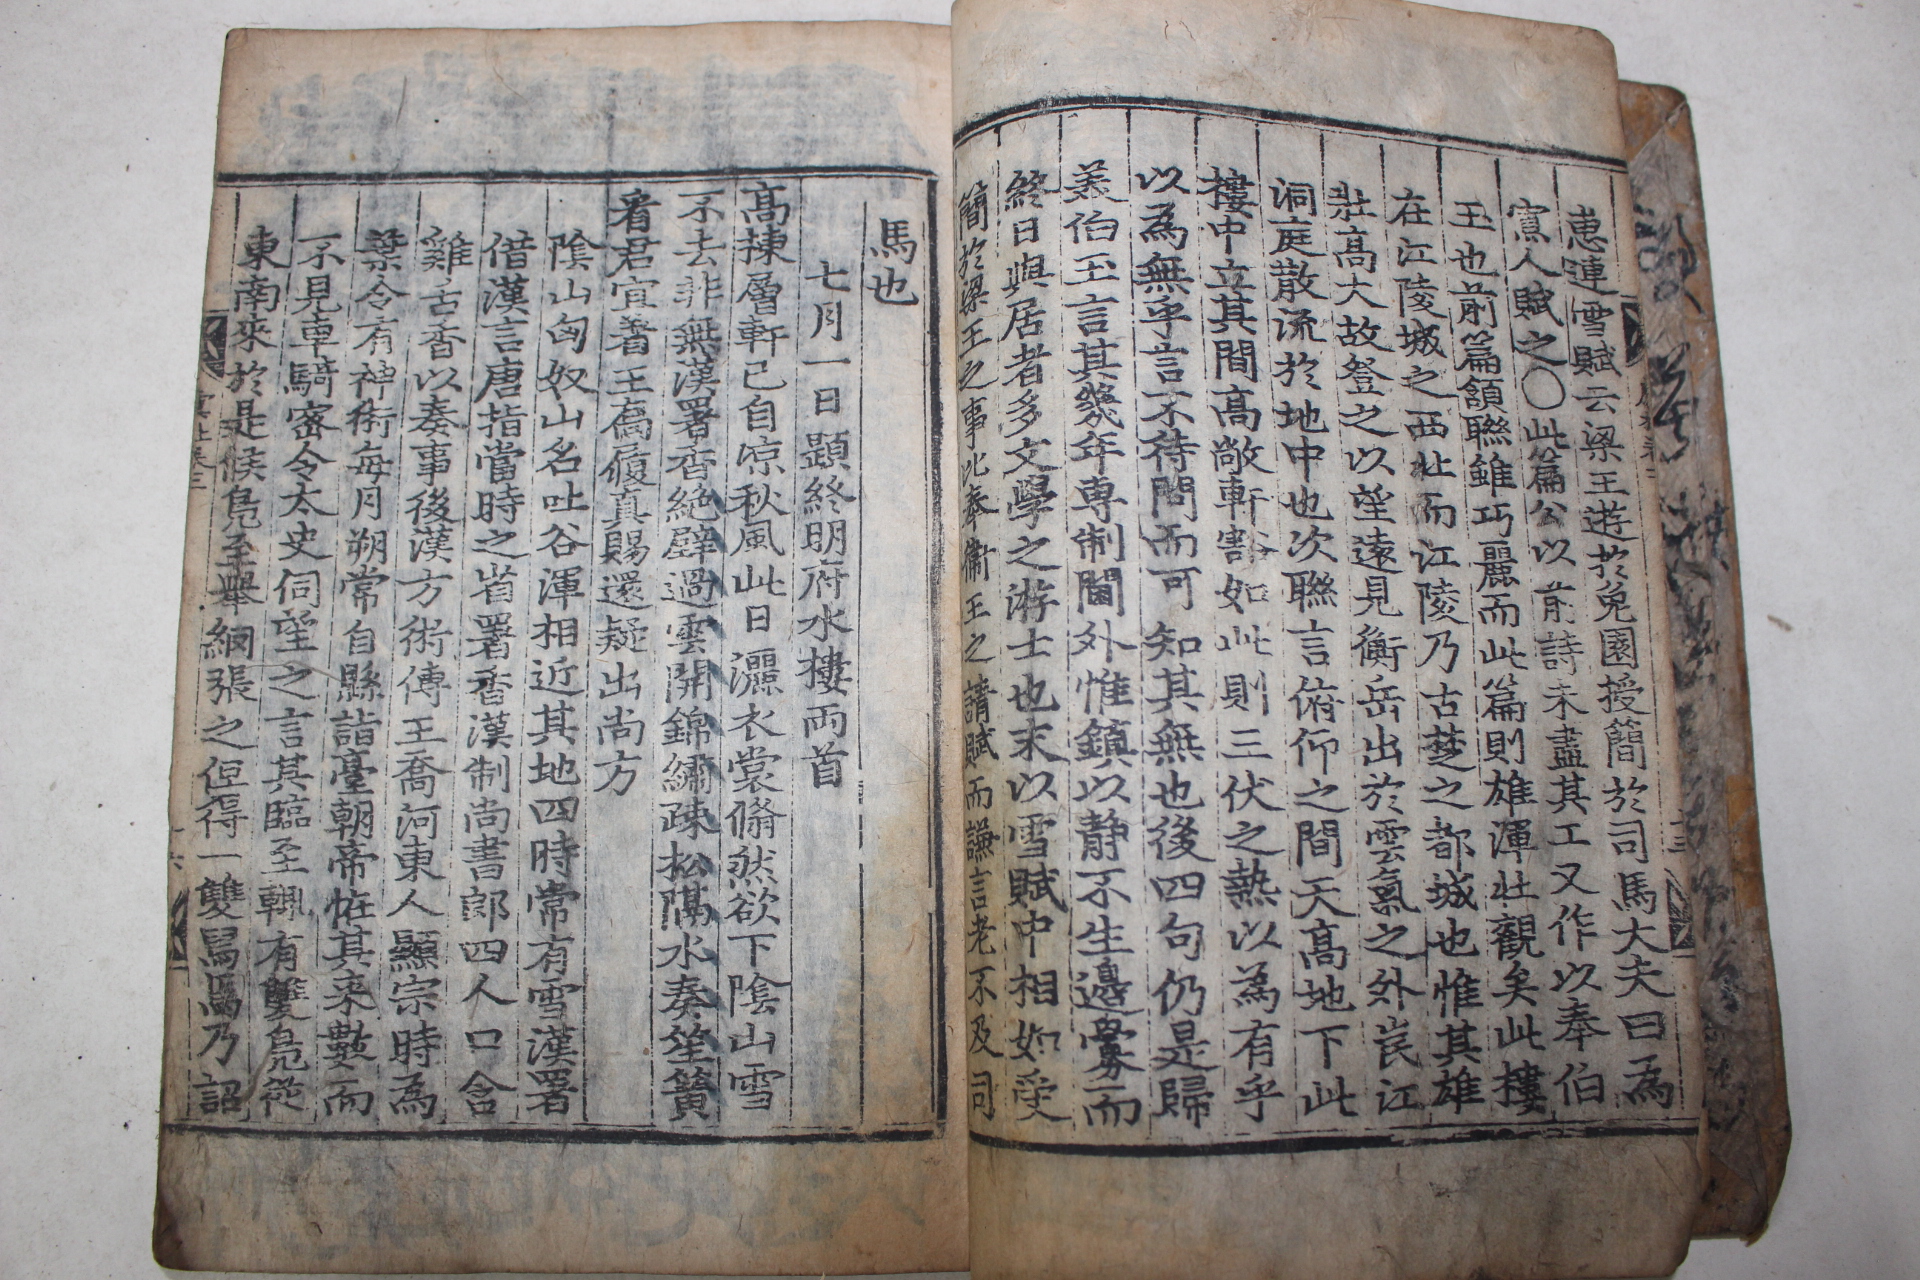 惠連雪賦云梁王遊於兔園授簡於司馬大夫曰為
寡人賦之○此篇公以前詩未盡其工又作以奉伯
玉也前篇頷聯雖巧麗而此篇則雄渾壯觀矣此樓
在江陵城之西北而江陵乃古楚之都城也惟其雄
壯高大故登之以望遠見衡岳出於雲氣之外岷江
洞庭散流於地中也次聯言俯仰之間天高地下此
樓中立其間高敞軒豁如此則三伏之熱以為有乎
以為無乎言不待問而可知其無也後四句仍是歸
美伯玉言其幾年専制閫外惟鎮以静不生邊釁而
終日與居者多文學之游士也末以雪賦中相如受
簡於梁王之事比奉衛王之請賦而謙言老不及司
馬也
七月一日題終明府水樓兩首
高揀層軒已自凉秋風此日灑衣裳翛然欲下陰山雪
不去非無漢署香絶壁過雲開錦繡疎松隔水奏笙簧
看君宜著王喬履真賜還疑出尚方
陰山匈奴山名吐谷渾相近其地四時常有雪漢署
借漢言唐指當時之省署香漢制尚書郎四人口含
雞舌香以奏事後漢方術傳王喬河東人顯宗時為
葉令有神術每月朔常自縣詣臺朝帝恠其来數而
不見車騎密令太史伺望之言其臨至輒有雙鳧從
東南來於是候鳧至舉網張之但得一雙舄焉乃詔